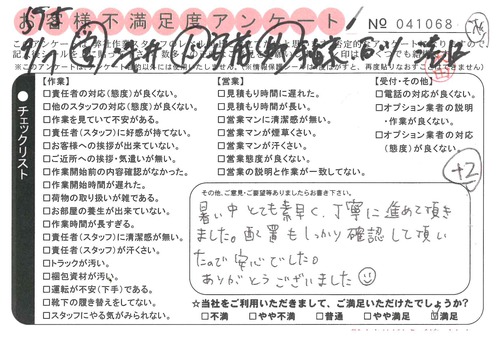 お客様不満足度アンケート
№ 041068
チェックリスト
【作業】
□責任者の対応(態度)が良くない。
□他のスタッフの対応(態度)が良くない。
□作業を見ていて不安がある。
□責任者(スタッフ)に好感が持てない。
□お客様への挨拶が出来ていない。
□ご近所への挨拶・気遣いが無い。
□作業開始前の内容確認がなかった。
□作業開始時間が遅れた。
□荷物の取り扱いが雑である。
□お部屋の養生が出来ていない。
□作業時間が長すぎる。
□責任者(スタッフ)に清潔感が無い。
□責任者(スタッフ)が汗くさい。
□トラックが汚い。
□梱包資材が汚い。
□運転が安(下手)である。
□靴下の履き替えをしてない。
□スタッフにやる気がみられない。
【営業】
□見積もり時間に遅れた。
□見積もり時間が長い。
□営業マンに清潔感が無い。
□営業マンが煙草くさい。
□営業マンが汗くさい。
□営業態度が良くない。
□営業の説明と作業が一致してない。
【受付・その他】
□電話の対応が良くない。
□オプション業者の説明
・作業が良くない。
□オプション業者の対応
(態度)が良くない。
+2
その他、ご意見・ご要望等ありましたらお書き下さい。
暑い中とても素早く、丁寧に進めて頂き
ました。配置もしっかり確認して頂い
たので安心でした。
ありがとうございました
☆当社をご利用いただきまして、ご満足いただけたでしょうか?
□不満 □やや不満 □普通 □やや満足 ☑満足